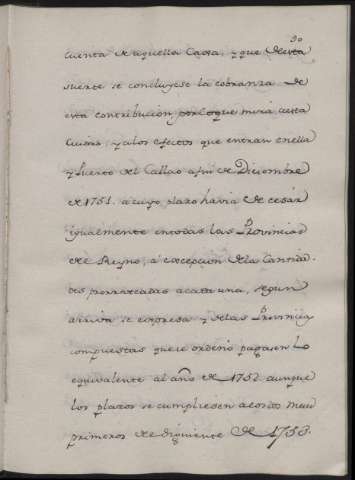 30
cuenta de aquella Caxa; y que de esta
suerte se concluyese la cobranza de
esta contribucion por loque mira a esta
Ciudad, y alos efectos que entran en ella
y Puerto del Callao a fin de Diciembre
de 1751. a cuyo plazo havia de cesár
igualmente en todas las Provincias
de el Reyno, á excepcion de la Cantida-
des prorrateadas a cada una, segun
arriva se expresa y de las Provincias
compuestas que se ordenó pagasen lo
equivalente al año de 1752. aunque
los plazos se cumpliesen a los dos meses
primeros de el siguiente de 1753.